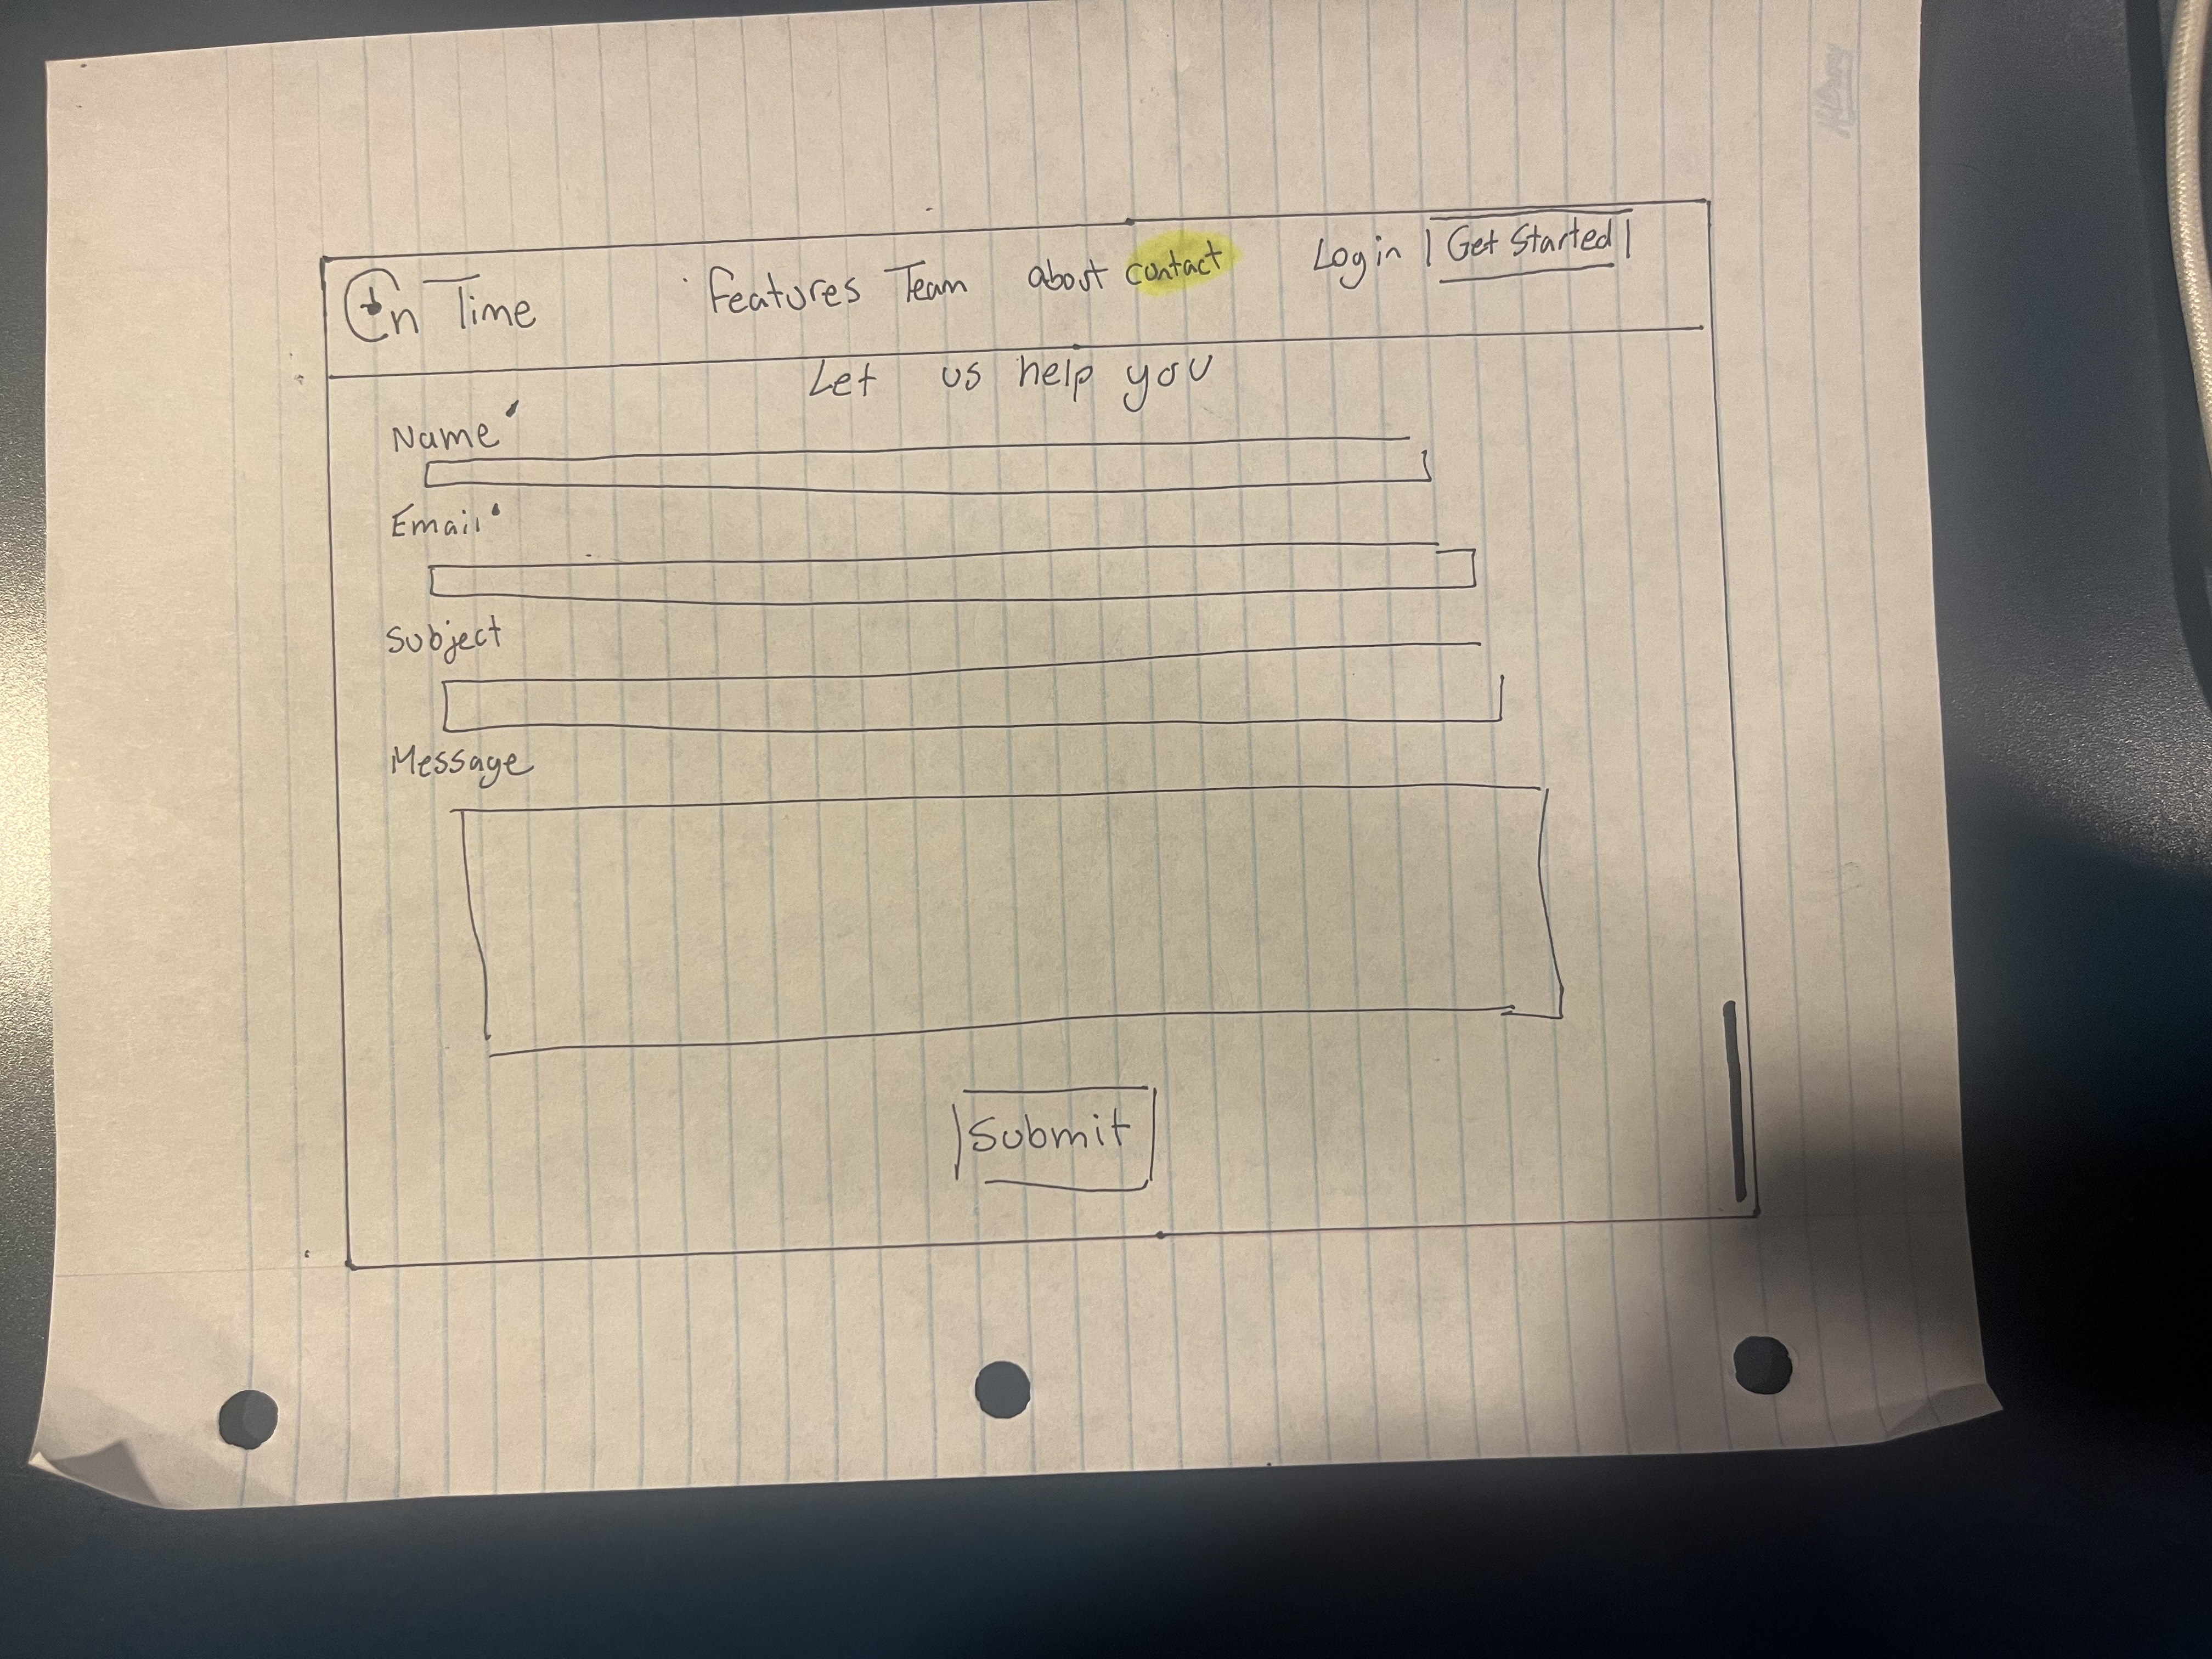 On Time Features Team about contact Login Get Started
Let us help you
Name
Email
Subject
Message
Submit